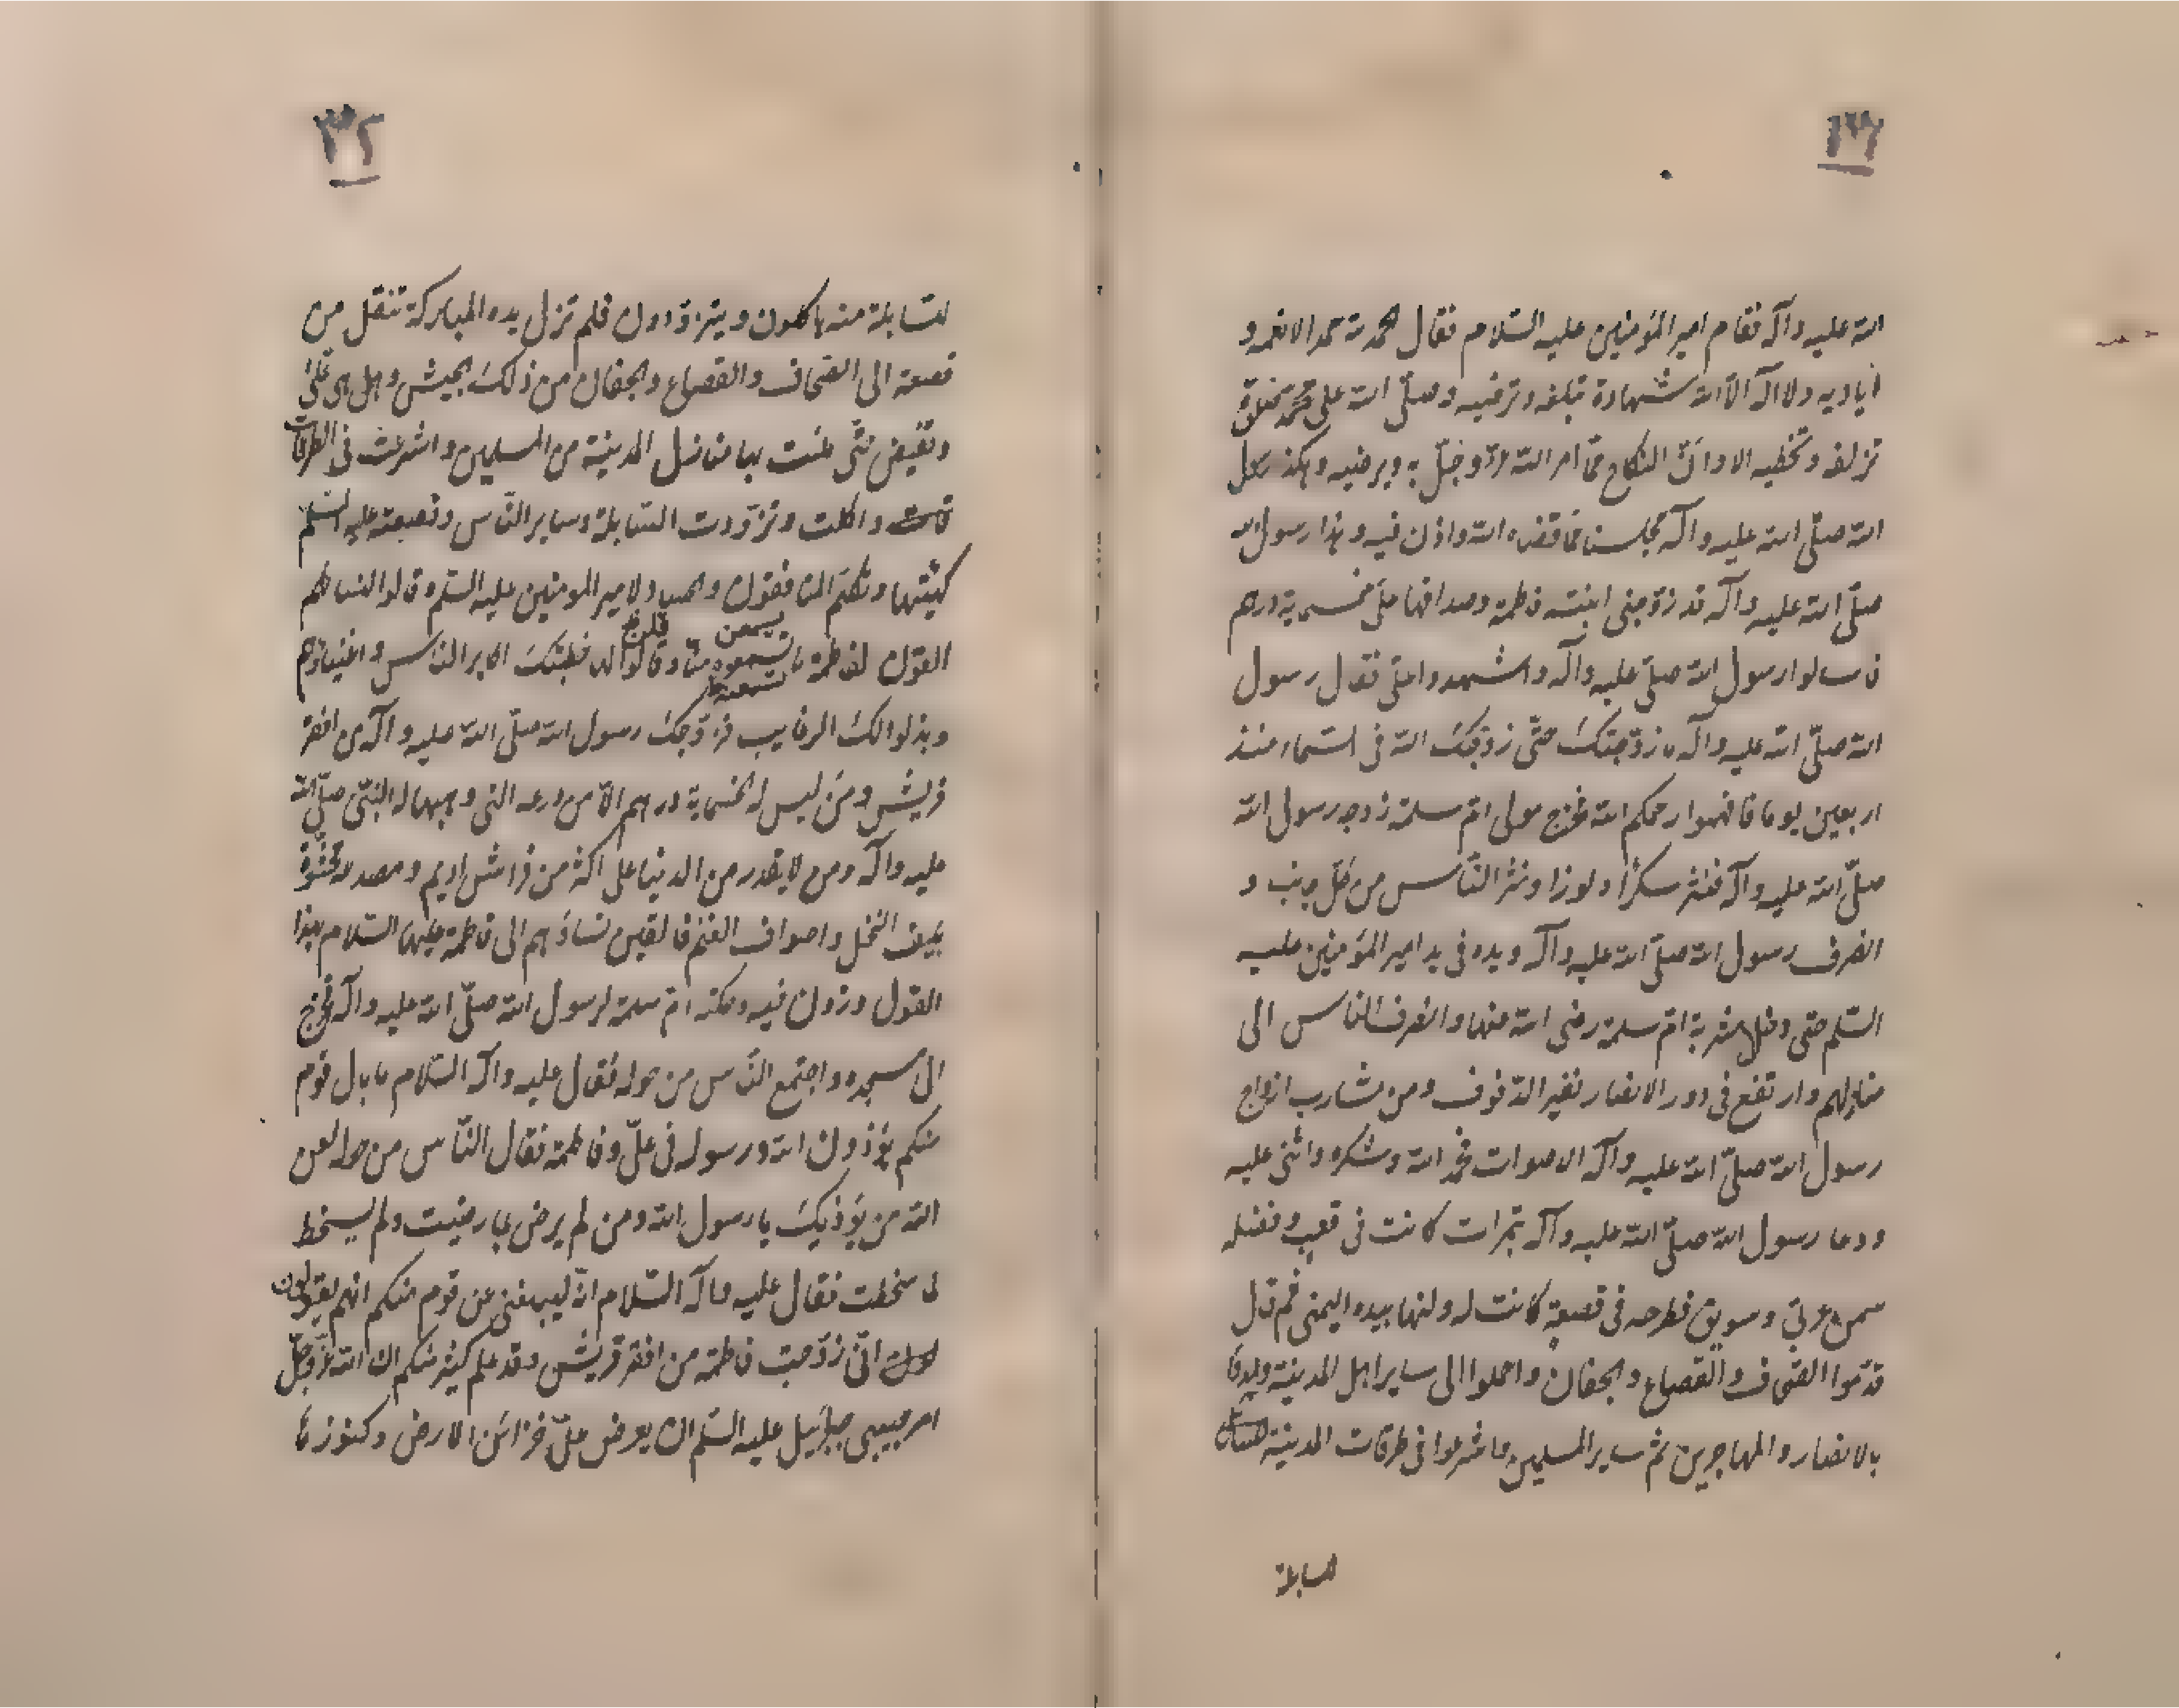 ٣١
الله عليه وآله فقام امير المؤمنين عليه السّلام فقال الحمد لله حمدا لانعمه و
اياديه ولا اله الّا الله شهادة تبلغه وترضيه وصلّى الله على محمد صلوة
تزلفه وتحظيه الا وانّ النكاح ممّا امر الله عزّ وجلّ به ويرضيه وهكذا رسول
الله صلّى الله عليه وآله مجلسنا ممّا قضاه الله واذن فيه وهذا رسول الله
صلّى الله عليه وآله قد زوّجني ابنته فاطمة وصداقها علىّ خمسماية درهم
فاسالوا رسول الله صلّى عليه وآله واشهدوا علىّ فقال رسول
الله صلّى الله عليه وآله ما زوّجتك حتّى زوّجك الله في السّماء منذ
اربعين يوما فافهموا رحمكم الله فخرج مولى امّ سلمة زوجه رسول الله
صلّى الله عليه وآله فنثر سكّرا ولوزا ونثر النّاس من كلّ جانب و
انصرف رسول الله صلّى الله عليه وآله ويده في يد امير المؤمنين عليه
السّلم حتى دخل مشربة امّ سلمة رضى الله عنها وانصرف الناس الى
منازلهم وارتفع في دور الانصار نقير الدّفوف ومن مشارب ازواج
رسول الله صلّى الله عليه وآله الاصوات فحمد الله وشكره واثنى عليه
ودعا رسول الله صلّى الله عليه وآله بتمرات كانت في قعب وفضله
سمن عربيّ وسويق فطرحه في قصعة كانت له ولتها بيده اليمنى ثم قال
قدّموا الصّحاف والقصاع والجفان واحملوا الى ساير اهل المدينة وابدؤا
بالانصار والمهاجرين ثم ساير المسلمين واشرعوا في طرقات المدينة
للسابلة
٣٢
للسّابلة منه ياكلون ويتزوّدون فلم تزل يده المباركة تنقل من
قصعة الى الصّحاف والقصاع والجفان من ذلك الحيس وهل هي تمتلئ
وتفيض حتّى ملئت بها منازل المدينة من المسلمين واشرعت في الطرقات
واكلت وتزوّدت السّابلة وساير النّاس وقصعته عليه السّلم
كهيئتها وتكلّم المنافقون والحسّاد لامير المومنين عليه السّلم وقالوا لنسائهم
القول لفاطمة ما يسمعن يسمعوه منّا وقالوا قلن لها خطبك اكابر الناس واغنياؤهم
وبذلوا لك الرغايب فزوّجك رسول الله صلّى الله عليه وآله من افقر
قريش ومن ليس له خمسماية درهم الّا من درعه التي وهبها له النّبيّ صلّى الله
عليه وآله ومن لا يقدر من الدنيا على اكثر من فراش اديم ومصدعة محشوّة
بليف النّخل واصواف الغنم فالقين نساؤهم الى فاطمة عليها السّلام هذا
القول وزدن فيه وحكته امّ سلمة لرسول الله صلّى الله عليه وآله فخرج
الى مسجده واجتمع النّاس من حوله فقال عليه وآله السّلام ما بال قوم
منكم يؤذون الله ورسوله في علىّ وفاطمة فقال النّاس من حوله لعن
الله من يؤذيك يا رسول الله ومن لم يرض بما رضيت ولم يسخط
لما سخطت فقال عليه وآله السّلام انّه ليبلغني عن قوم منكم انهم يقولون
انّى زوّجت فاطمة من افقر قريش وقد علم كثير منكم ان الله عزّ وجلّ
امر حبيبى جبرئيل عليه السّلم ان يعرض علىّ خزائن الارض وكنوزها